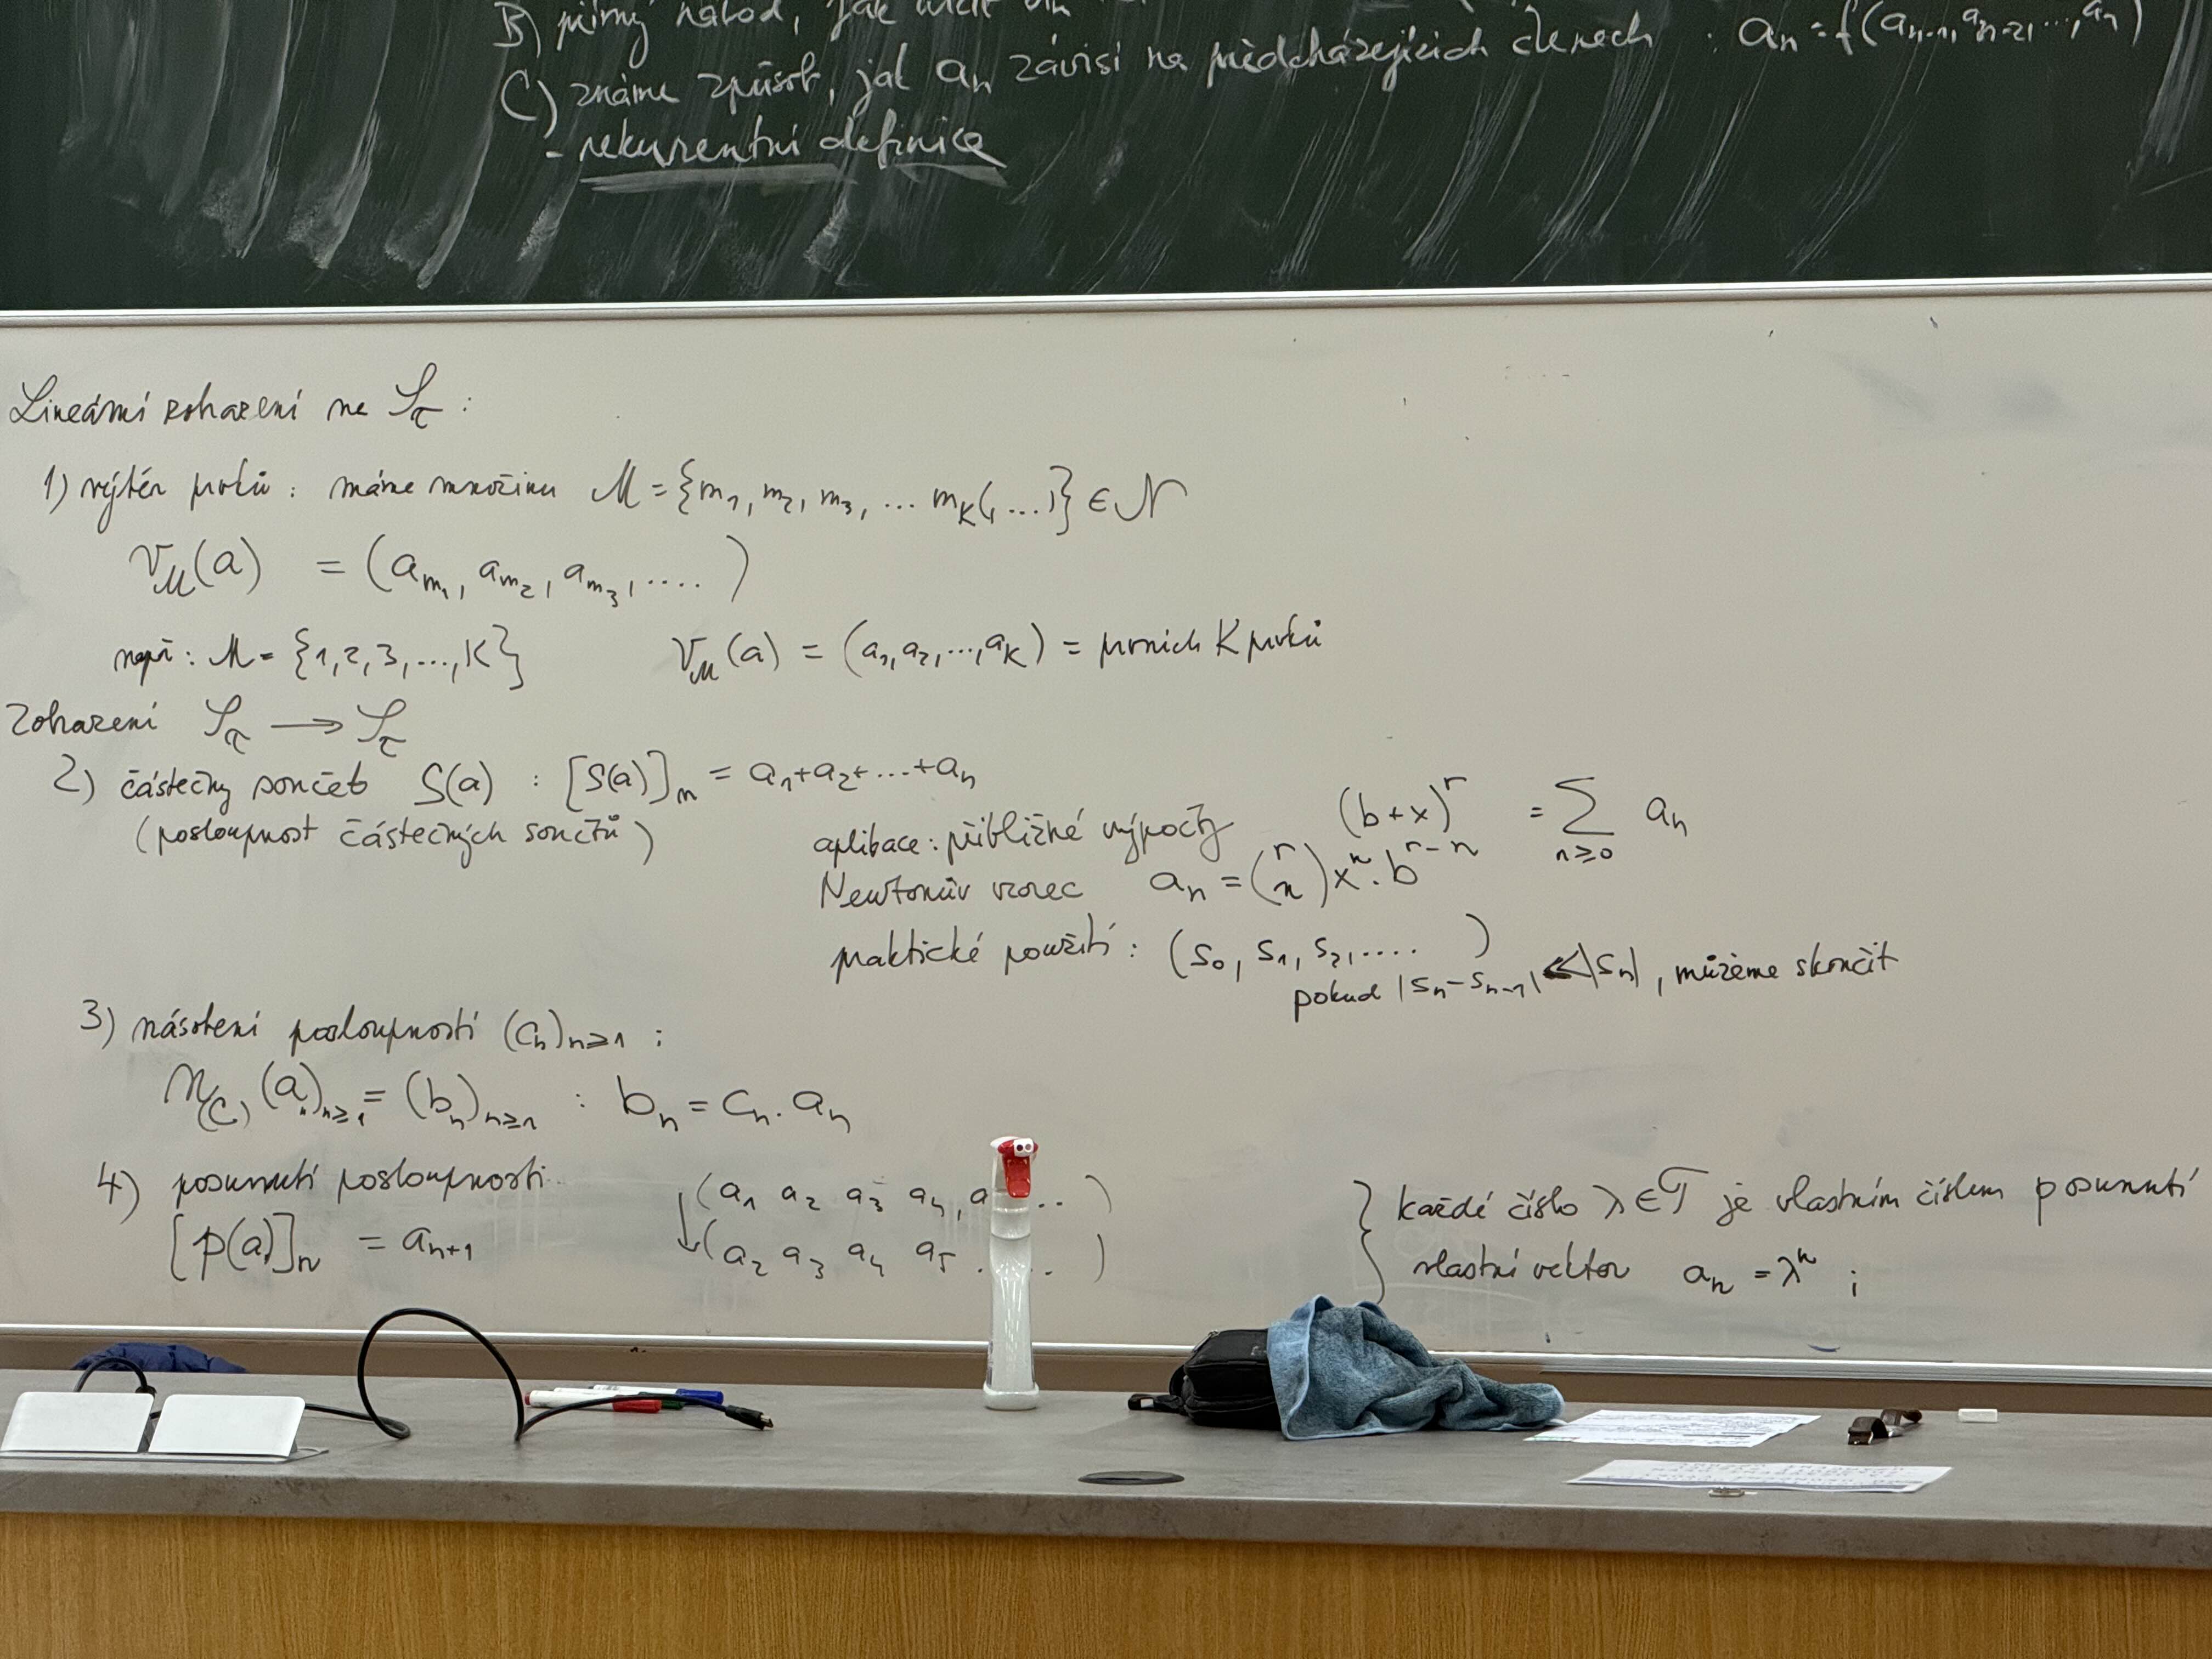 B) přímý návod, jak
C) známe způsob, jak aₙ závisí na předcházejících členech : aₙ = f(aₙ₋₁, aₙ₋₂, ..., a₁)
- rekurentní definice
Lineární zobrazení na 𝒮 :
1) výběr prvků : máme množinu ℳ = {m₁, m₂, m₃, ... m_K(, ...)} ∈ 𝒩
V_ℳ(a) = (a_m₁, a_m₂, a_m₃, .... )
např : ℳ = {1, 2, 3, ..., K} V_ℳ(a) = (a₁, a₂, ..., a_K) = prvních K prvků
Zobrazení 𝒮 → 𝒮
2) částečný součet S(a) : [S(a)]ₙ = a₁ + a₂ + ... + aₙ
(posloupnost částečných součtů)
aplikace : přibližné výpočty (b + x)^r = ∑_{n≥0} aₙ
Newtonův vzorec aₙ = (r n) xⁿ . b^{r-n}
praktické použití : (s₀, s₁, s₂, .... )
pokud |sₙ - sₙ₋₁| ≪ |sₙ|, můžeme skončit
3) násobení posloupností (cₙ)ₙ≥₁ :
N_(c) (aₙ)ₙ≥₁ = (bₙ)ₙ≥₁ : bₙ = cₙ . aₙ
4) posunutí posloupnosti (a₁ a₂ a₃ a₄, a .. )
[p(a)]ₙ = aₙ₊₁ ↓ (a₂ a₃ a₄ a₅ . .. )
} každé číslo λ ∈ 𝒯 je vlastním číslem posunutí
vlastní vektor aₙ = λⁿ ;